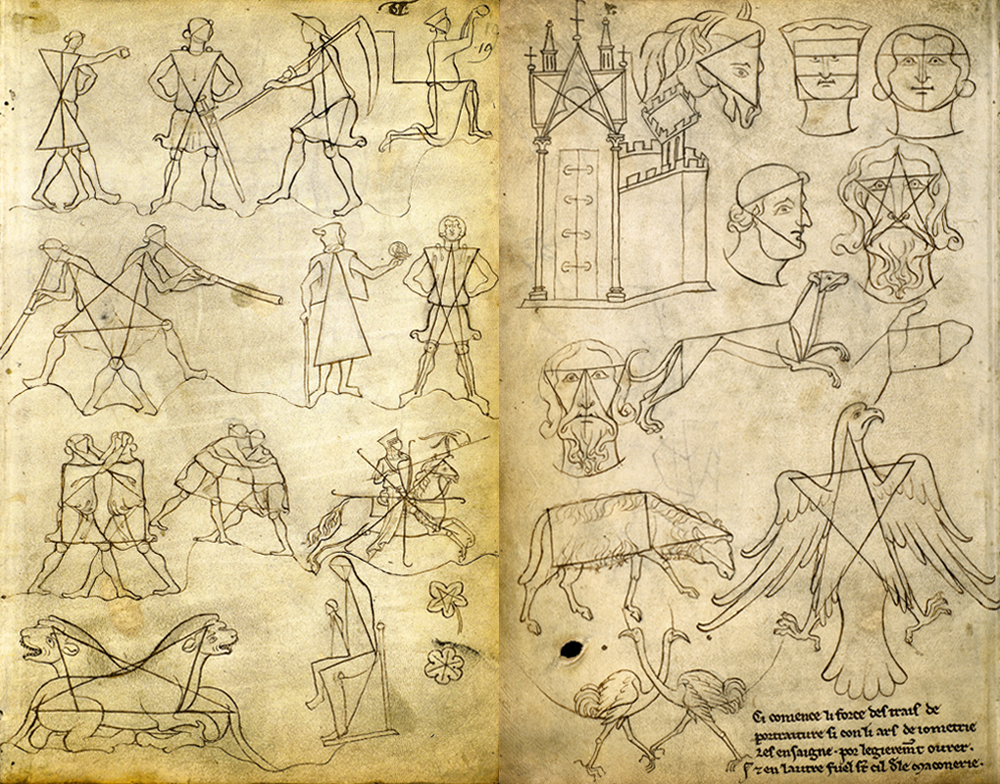 19
Ci comence li force des trais de
portraiture si con li ars de iometrie
les ensaigne · por legieremt ovrer ·
⁊ en lautre fuel st cil dle maconerie ·